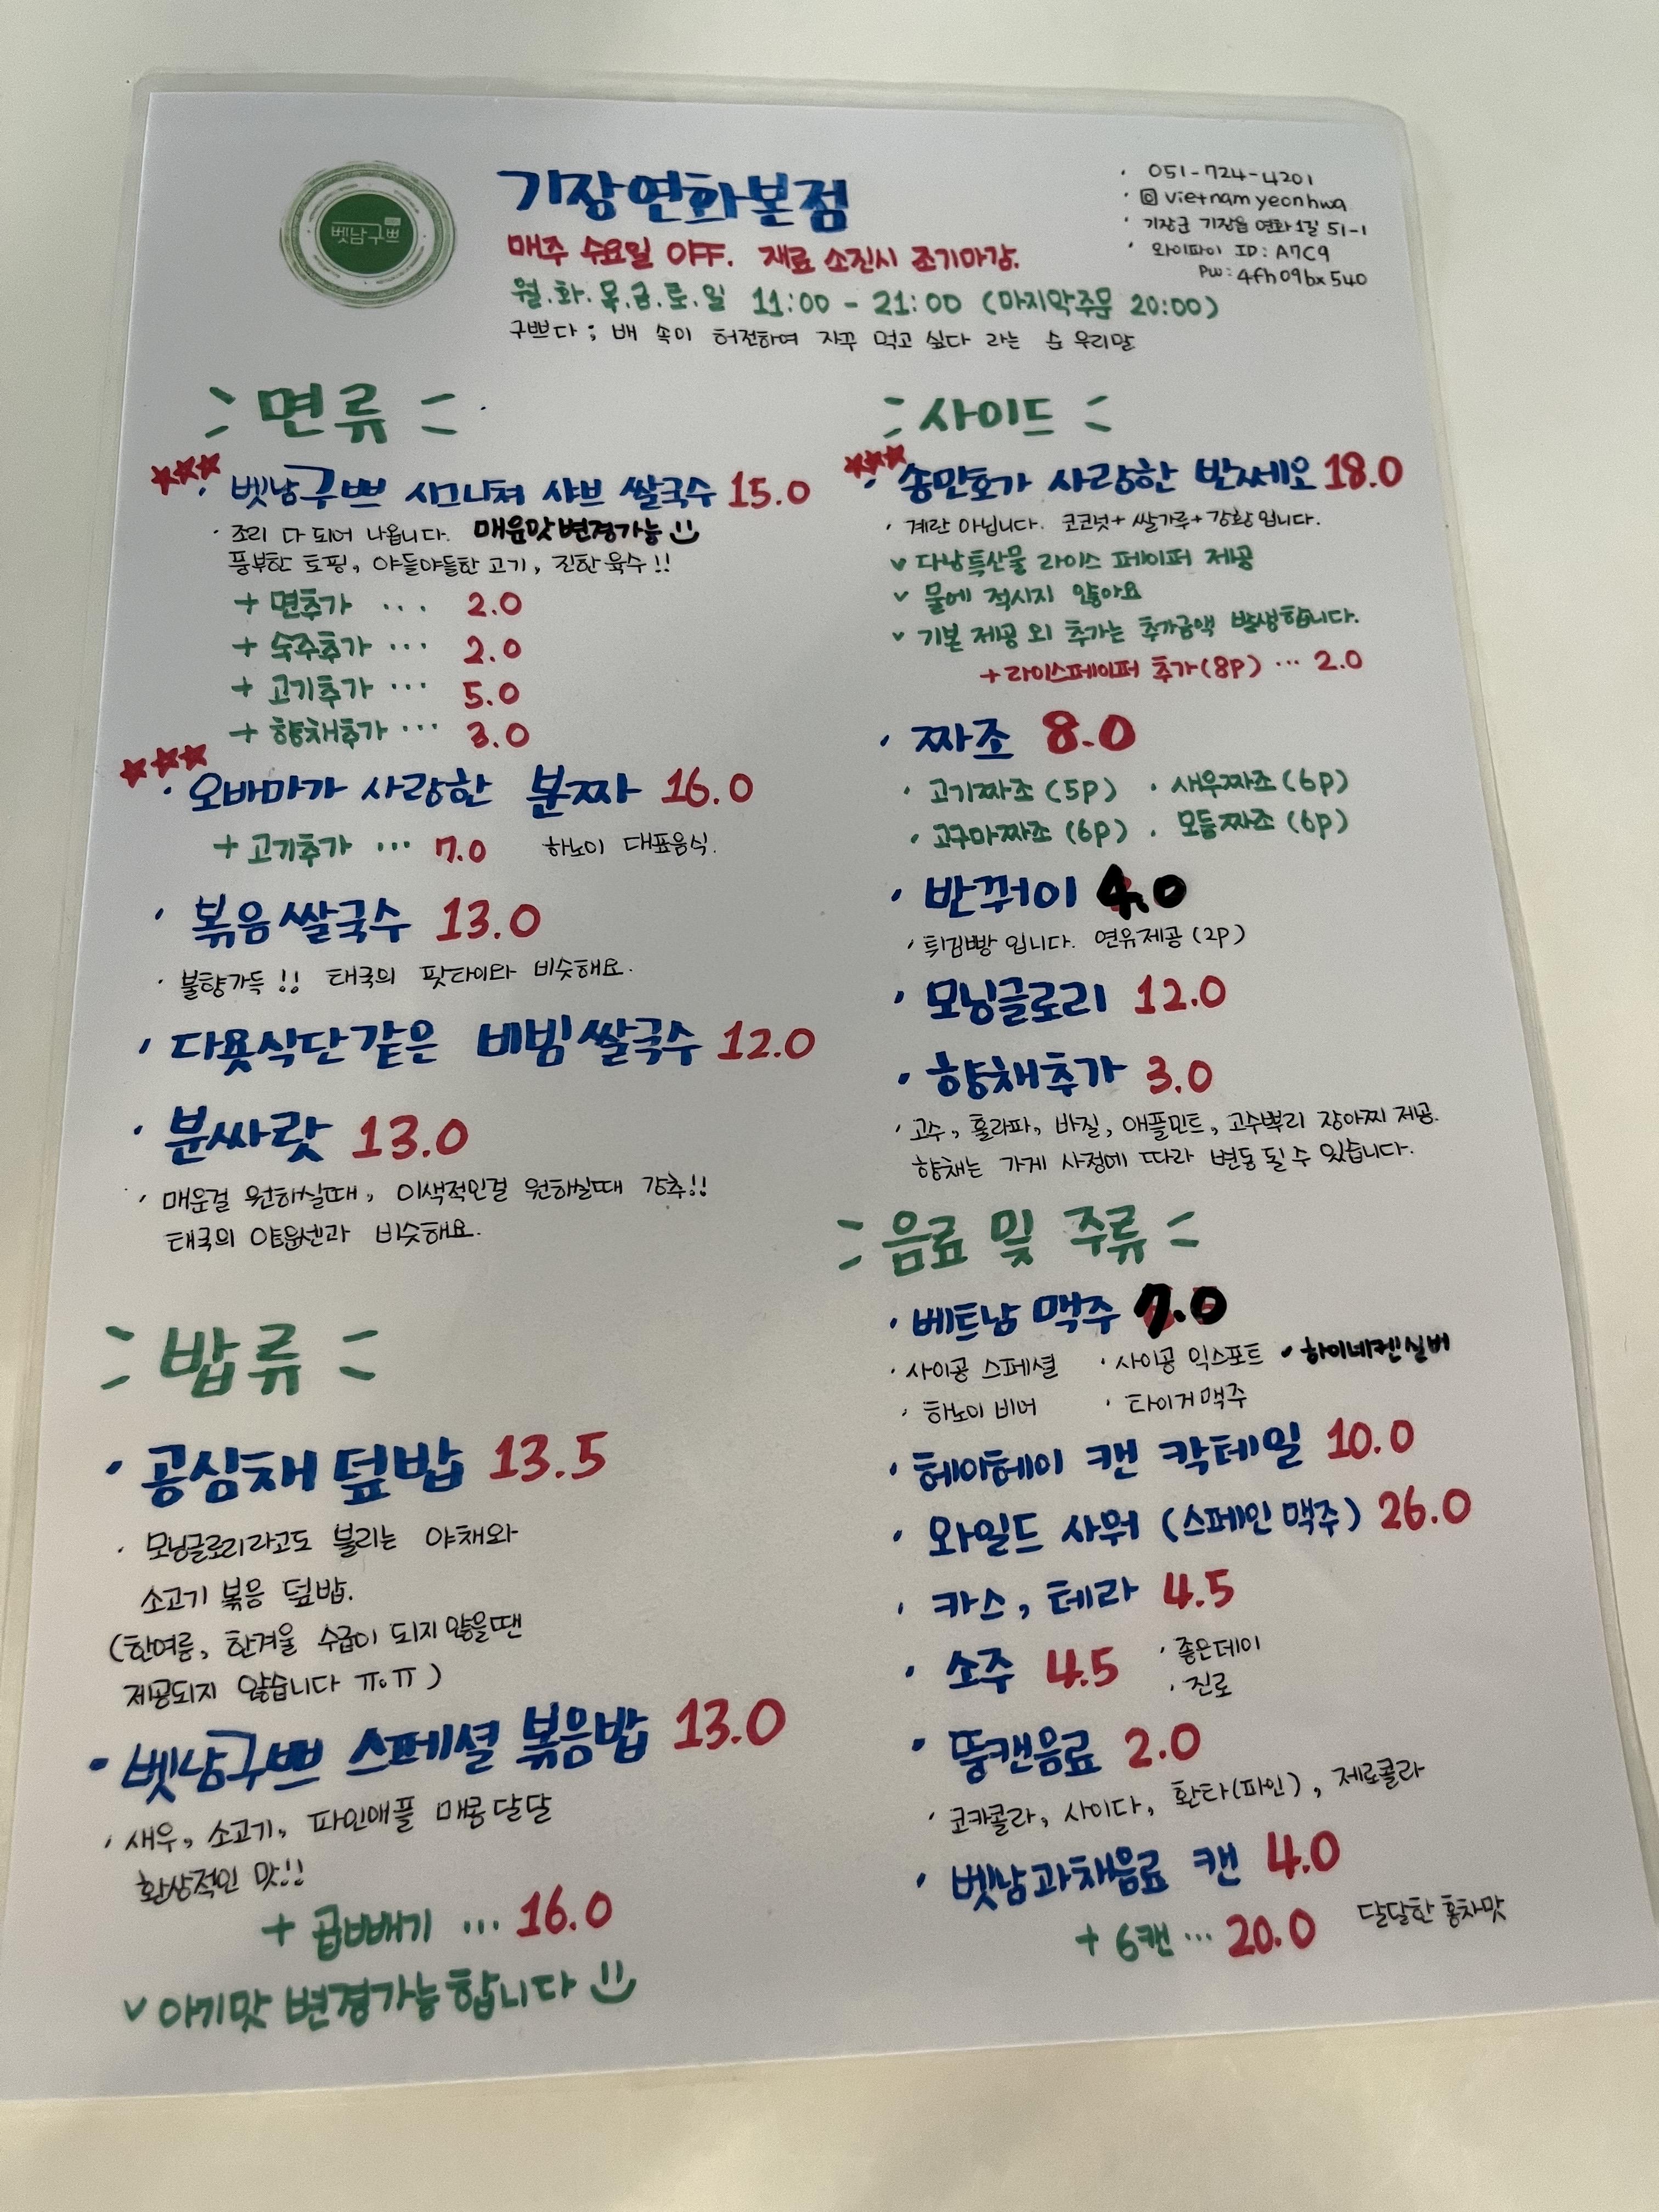 벳남구쁘
기장연화본점
매주 수요일 OFF. 재료 소진시 조기마감.
월.화.목.금.토.일 11:00 - 21:00 (마지막주문 20:00)
구쁘다 ; 배 속이 허전하여 자꾸 먹고 싶다 라는 순 우리말
· 051-724-4201
· vietnamyeonhwa
· 기장군 기장읍 연화1길 51-1
· 와이파이 ID : A7C9
PW : 4fh09bx540
면류
· 벳남구쁘 시그니쳐 샤브 쌀국수 15.0
· 조리 다 되어 나옵니다. 매운맛변경가능
풍부한 토핑, 야들야들한 고기, 진한육수!!
+ 면추가 ... 2.0
+ 숙주추가 ... 2.0
+ 고기추가 ... 5.0
+ 향채추가 ... 3.0
· 오바마가 사랑한 분짜 16.0
+ 고기추가 ... 7.0 하노이 대표음식.
· 볶음쌀국수 13.0
· 불향가득!! 태국의 팟타이와 비슷해요.
· 다욧식단같은 비빔쌀국수 12.0
· 분싸랏 13.0
· 매운걸 원하실때, 이색적인걸 원하실때 강추!!
태국의 얌운센과 비슷해요.
밥류
· 공심채덮밥 13.5
· 모닝글로리라고도 불리는 야채와
소고기 볶음 덮밥.
(한여름, 한겨울 수급이 되지 않을땐
제공되지 않습니다 ㅠ.ㅠ)
· 벳남구쁘 스페셜 볶음밥 13.0
· 새우, 소고기, 파인애플 매콤달달
환상적인 맛!!
+ 곱빼기 ... 16.0
v 아기맛 변경가능합니다
사이드
· 송만호가 사랑한 반쎄오 18.0
· 계란 아닙니다. 코코넛+쌀가루+강황입니다.
v 다낭특산물 라이스 페이퍼 제공
v 물에 적시지 않아요
v 기본 제공 외 추가는 추가금액 발생합니다.
+라이스페이퍼 추가(8P) ... 2.0
· 짜조 8.0
· 고기짜조 (5P) · 새우짜조 (6P)
· 고구마짜조 (6P) · 모듬짜조 (6P)
· 반꿔이 4.0
· 튀김빵 입니다. 연유제공 (2P)
· 모닝글로리 12.0
· 향채추가 3.0
· 고수, 홀라파, 바질, 애플민트, 고수뿌리 장아찌 제공.
향채는 가게 사정에 따라 변동 될 수 있습니다.
음료 및 주류
· 베트남 맥주 7.0
· 사이공 스페셜 · 사이공 익스포트 · 하이네켄실버
· 하노이 비어 · 타이거맥주
· 헤이헤이 캔 칵테일 10.0
· 와일드 사워 (스페인 맥주) 26.0
· 카스, 테라 4.5
· 소주 4.5 · 좋은데이
· 진로
· 뚱캔음료 2.0
· 코카콜라, 사이다, 환타(파인), 제로콜라
· 벳남과채음료 캔 4.0
+ 6캔 ... 20.0 달달한 홍차맛